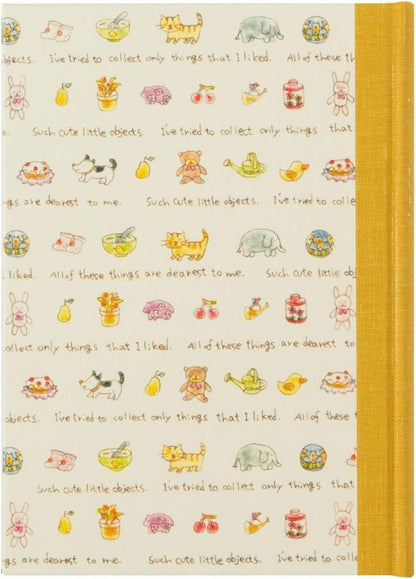 objects. I've tried to collect only things that I liked. All of these th
s. Such cute little objects. I've tried to collect only things that
ngs are dearest to me. Such cute little objects. I've tried to colle
liked. All of these things are dearest to me. Such cute little ob
ollect only things that I liked. All of these things are dearest to
objects. I've tried to collect only things that I liked. All of these
Such cute little objects. I've tried to collect only things that
ngs are dearest to me. Such cute little objects. I've tried to colle